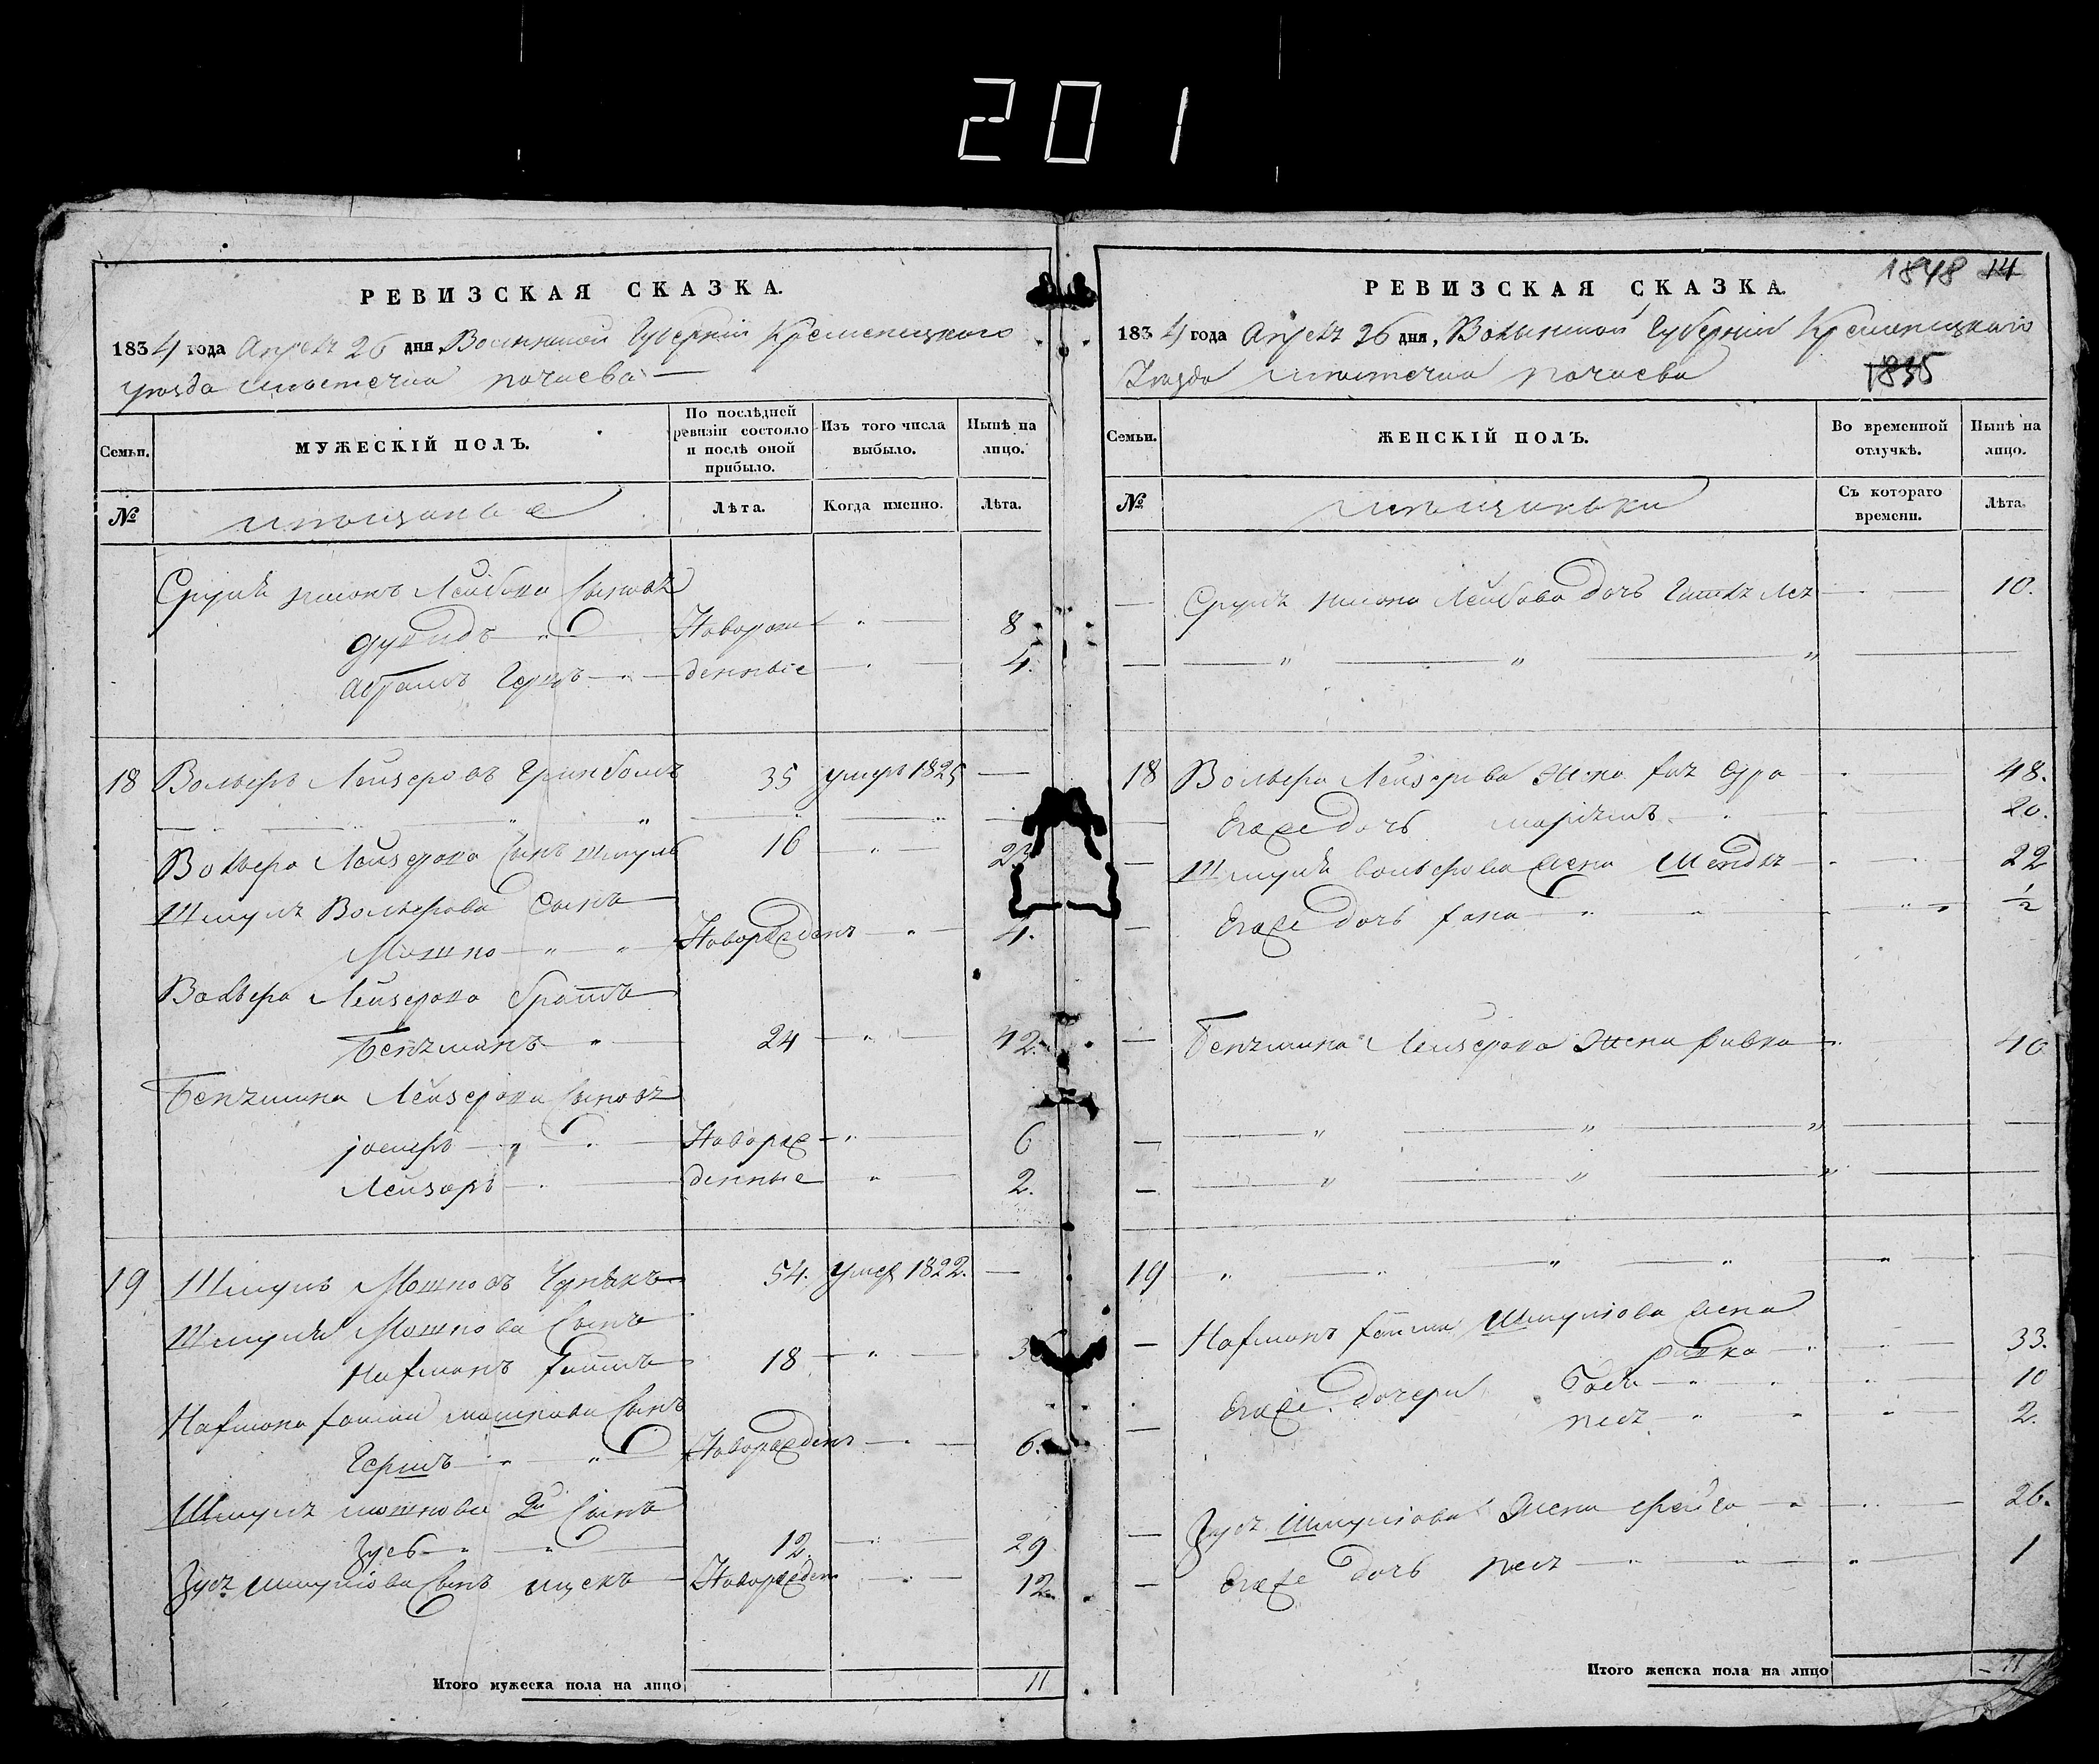 201
РЕВИЗСКАЯ СКАЗКА.
1834 года Апреля 26 дня Волынской Губерніи Кременецкого
уезда местечка почаева
Семьи.
МУЖЕСКІЙ ПОЛЪ.
По послѣдней ревизіи состояло и послѣ оной прибыло.
Изъ того числа выбыло.
Нынѣ на лицо.
№
мещане
Лѣта.
Когда именно.
Лѣта.
Лейбова Сыновя
Новорож 8
Абрамъ Гершъ денные 4.
18 Вольфъ Лейзеровъ Гринбомъ 35 умеръ 1825
Вольфа Лейзерова Сынъ Шмуль 16
Шмуля Вольфова Сынъ
Мошко Новорожденъ 4.
Вольфа Лейзерова братъ
Беняминъ 24 42.
Бенямина Лейзерова Сыновя
Іосифъ Новорож 6
Лейзоръ денные 2.
19 Шмуль Мошковъ 54. умер 1822.
Шмуля Мошкова Сынъ
Нахманъ Хаимъ 18
Нахмана Хаима мошкова Сынъ
Гершъ Новорожденъ 6.
Шмуля мошкова 2й Сынъ
Зусь 12. 29
Зуся шмулиова Сынъ ицекъ Новорожден 12.
Итого мужеска пола на лицо 11
1848 14
РЕВИЗСКАЯ СКАЗКА.
1834 года Апреля 26 дня, Волынской Губерніи Кременецкого
Уезда местечка почаева
1835
Семьи.
ЖЕНСКІЙ ПОЛЪ.
Во временной отлучкѣ.
Нынѣ на лицо.
№
мещанки
Съ котораго времени.
Лѣта.
Лейбова дочь 10.
18 Вольфа Лейзерова жена Хая Сура 48.
Егоже дочь мариямъ 20.
Шмуля вольфова жена Шендля 22
Егоже дочь Хана ½
Бенямина Лейзерова жена Ривка 40
19
Нахманъ Хаима Шмулиова жена
Ривка 33.
Егоже дочери Бася 10
песя 2.
Зуся Шмулиова жена фейга 26.
Егоже дочь песя 1
Итого женска пола на лицо 11